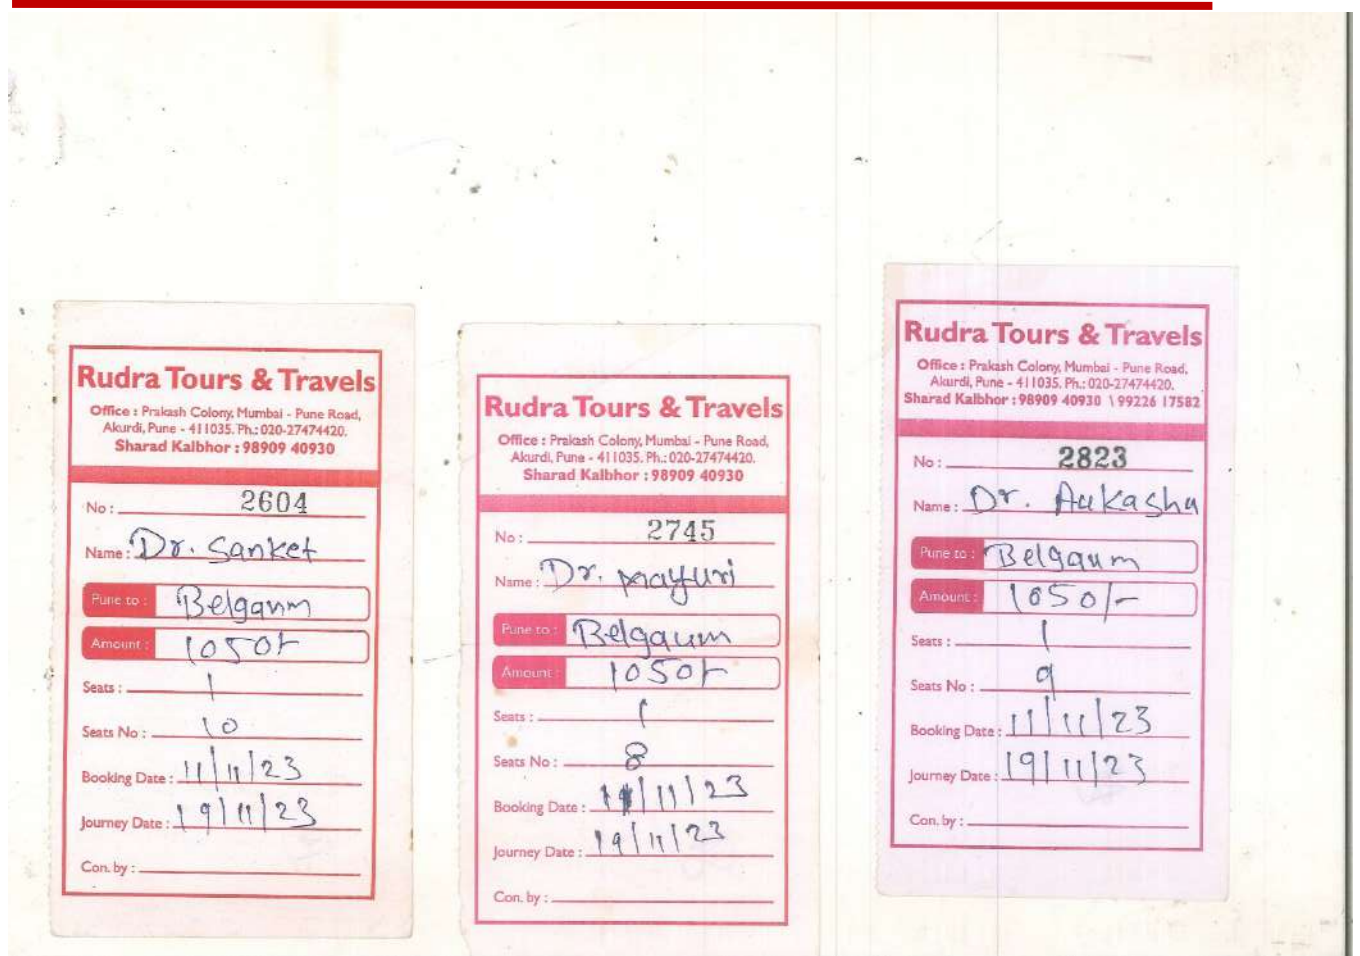 Rudra Tours & Travels
Office : Prakash Colony, Mumbai - Pune Road,
Akurdi, Pune - 411035. Ph.: 020-27474420.
Sharad Kalbhor : 98909 40930
No : 2604
Name : Dr. Sanket
Pune to : Belgaum
Amount : 1050/-
Seats : 1
Seats No : 10
Booking Date : 11/11/23
Journey Date : 19/11/23
Con. by :
Rudra Tours & Travels
Office : Prakash Colony, Mumbai - Pune Road,
Akurdi, Pune - 411035. Ph.: 020-27474420.
Sharad Kalbhor : 98909 40930
No : 2745
Name : Dr. mayuri
Pune to : Belgaum
Amount : 1050/-
Seats : 1
Seats No : 8
Booking Date : 11/11/23
Journey Date : 19/11/23
Con. by :
Rudra Tours & Travels
Office : Prakash Colony, Mumbai - Pune Road,
Akurdi, Pune - 411035. Ph.: 020-27474420.
Sharad Kalbhor : 98909 40930 \ 99226 17582
No : 2823
Name : Dr. Aukasha
Pune to : Belgaum
Amount : 1050/-
Seats : 1
Seats No : 9
Booking Date : 11/11/23
Journey Date : 19/11/23
Con. by :